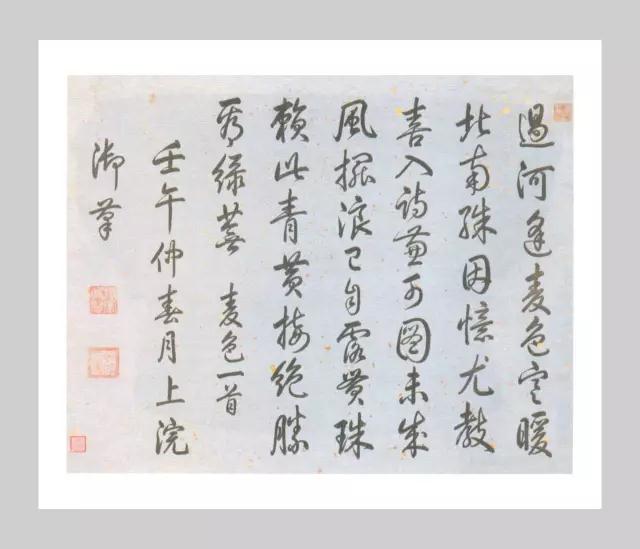 過河逢麥色寒暖
北南殊因憶尤教
喜入詩兼可圖未成
風擺浪已自露貫珠
賴此青黃接絕勝
秀綠蕪 麥色一首
壬午仲春月上浣
御筆